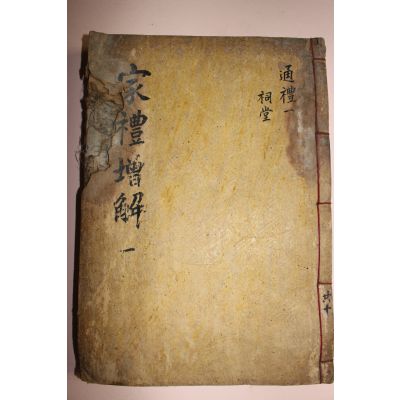 家禮增解 一
通禮一
祠堂
共十